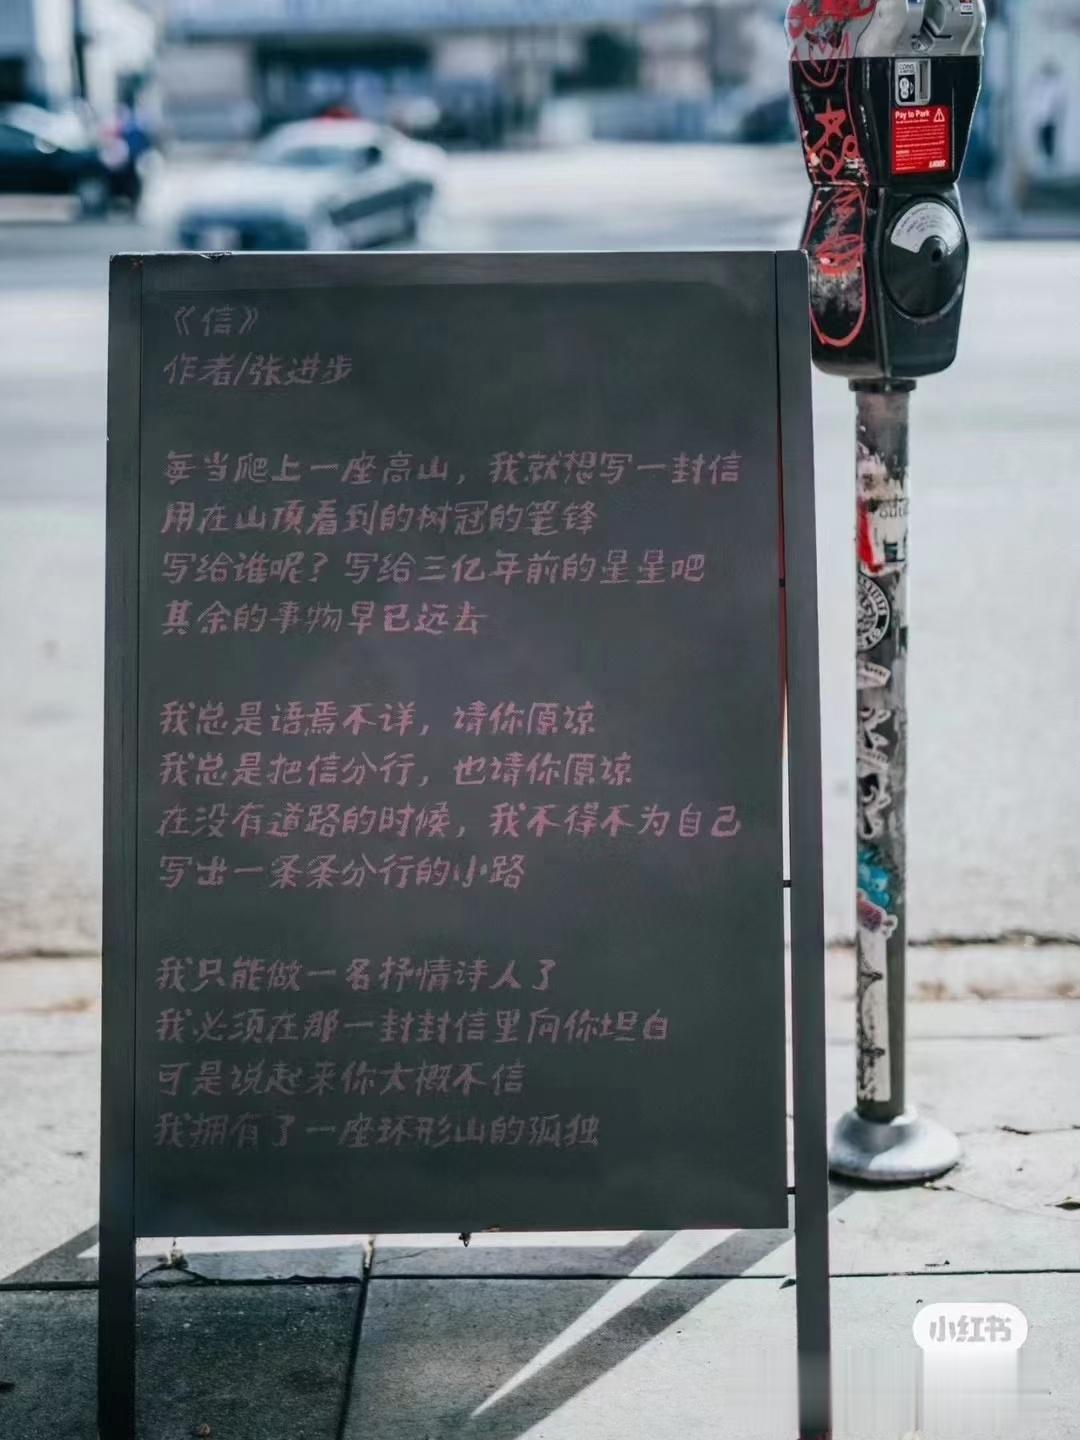 《信》
作者/张进步
每当爬上一座高山，我就想写一封信
用在山顶看到的树冠的笔锋
写给谁呢？写给三亿年前的星星吧
其余的事物早已远去
我总是语焉不详，请你原谅
我总是把信分行，也请你原谅
在没有道路的时候，我不得不为自己
写出一条条分行的小路
我只能做一名抒情诗人了
我必须在那一封封信里向你坦白
可是说起来你大概不信
我拥有了一座环形山的孤独
Pay to Park
小红书